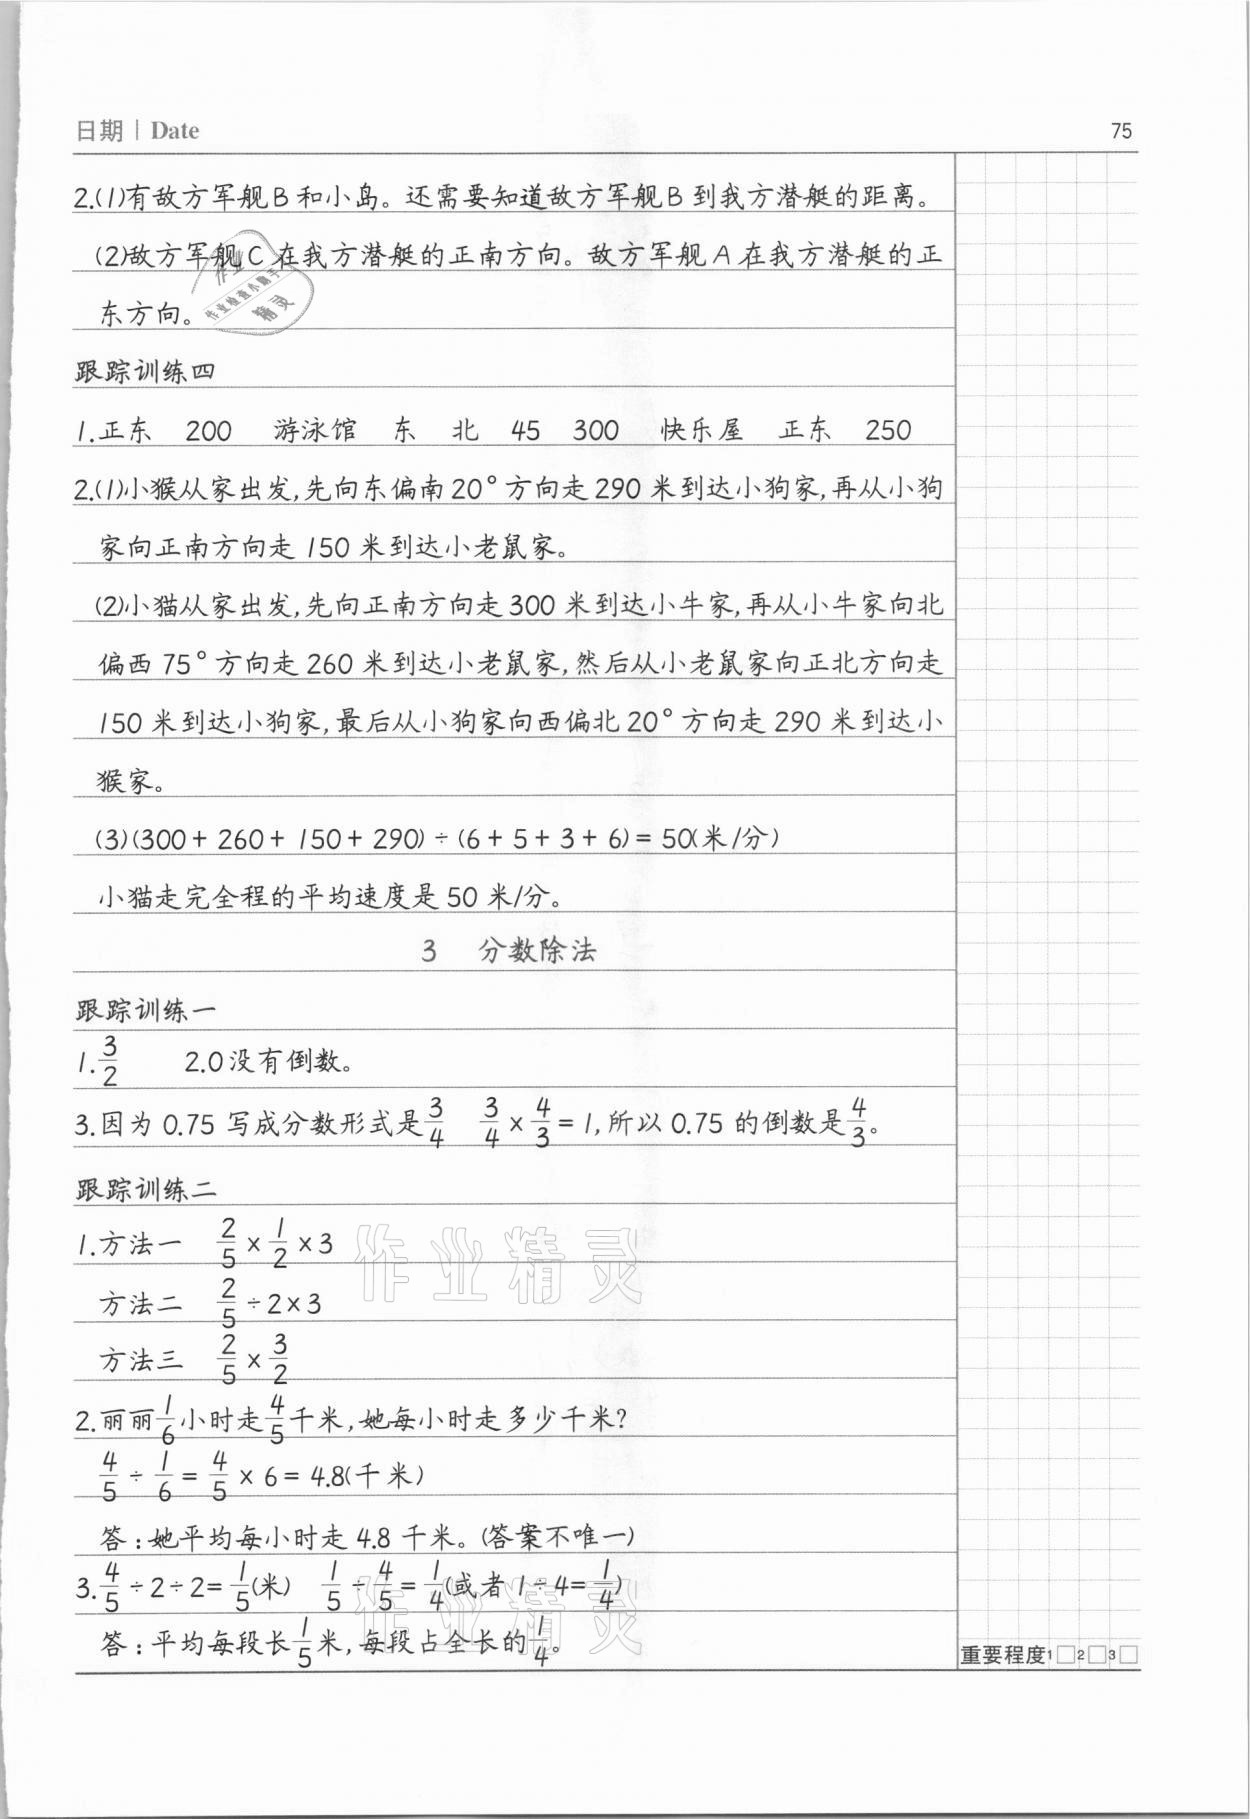 日期 | Date
75
2.(1)有敌方军舰B和小岛。还需要知道敌方军舰B到我方潜艇的距离。
(2)敌方军舰C在我方潜艇的正南方向。敌方军舰A在我方潜艇的正
东方向。
作业
作业检查小助手
精灵
跟踪训练四
1.正东 200 游泳馆 东 北 45 300 快乐屋 正东 250
2.(1)小猴从家出发,先向东偏南20°方向走290米到达小狗家,再从小狗
家向正南方向走150米到达小老鼠家。
(2)小猫从家出发,先向正南方向走300米到达小牛家,再从小牛家向北
偏西75°方向走260米到达小老鼠家,然后从小老鼠家向正北方向走
150米到达小狗家,最后从小狗家向西偏北20°方向走290米到达小
猴家。
(3)(300+260+150+290)÷(6+5+3+6)=50(米/分)
小猫走完全程的平均速度是50米/分。
3 分数除法
跟踪训练一
1.3/2 2.0没有倒数。
3.因为0.75写成分数形式是3/4 3/4×4/3=1,所以0.75的倒数是4/3。
跟踪训练二
1.方法一 2/5×1/2×3
方法二 2/5÷2×3
方法三 2/5×3/2
作业精灵
2.丽丽1/6小时走4/5千米,她每小时走多少千米?
4/5÷1/6=4/5×6=4.8(千米)
答:她平均每小时走4.8千米。(答案不唯一)
3.4/5÷2÷2=1/5(米) 1/5÷4/5=1/4(或者1÷4=1/4)
答:平均每段长1/5米,每段占全长的1/4。
作业精灵
重要程度1□2□3□